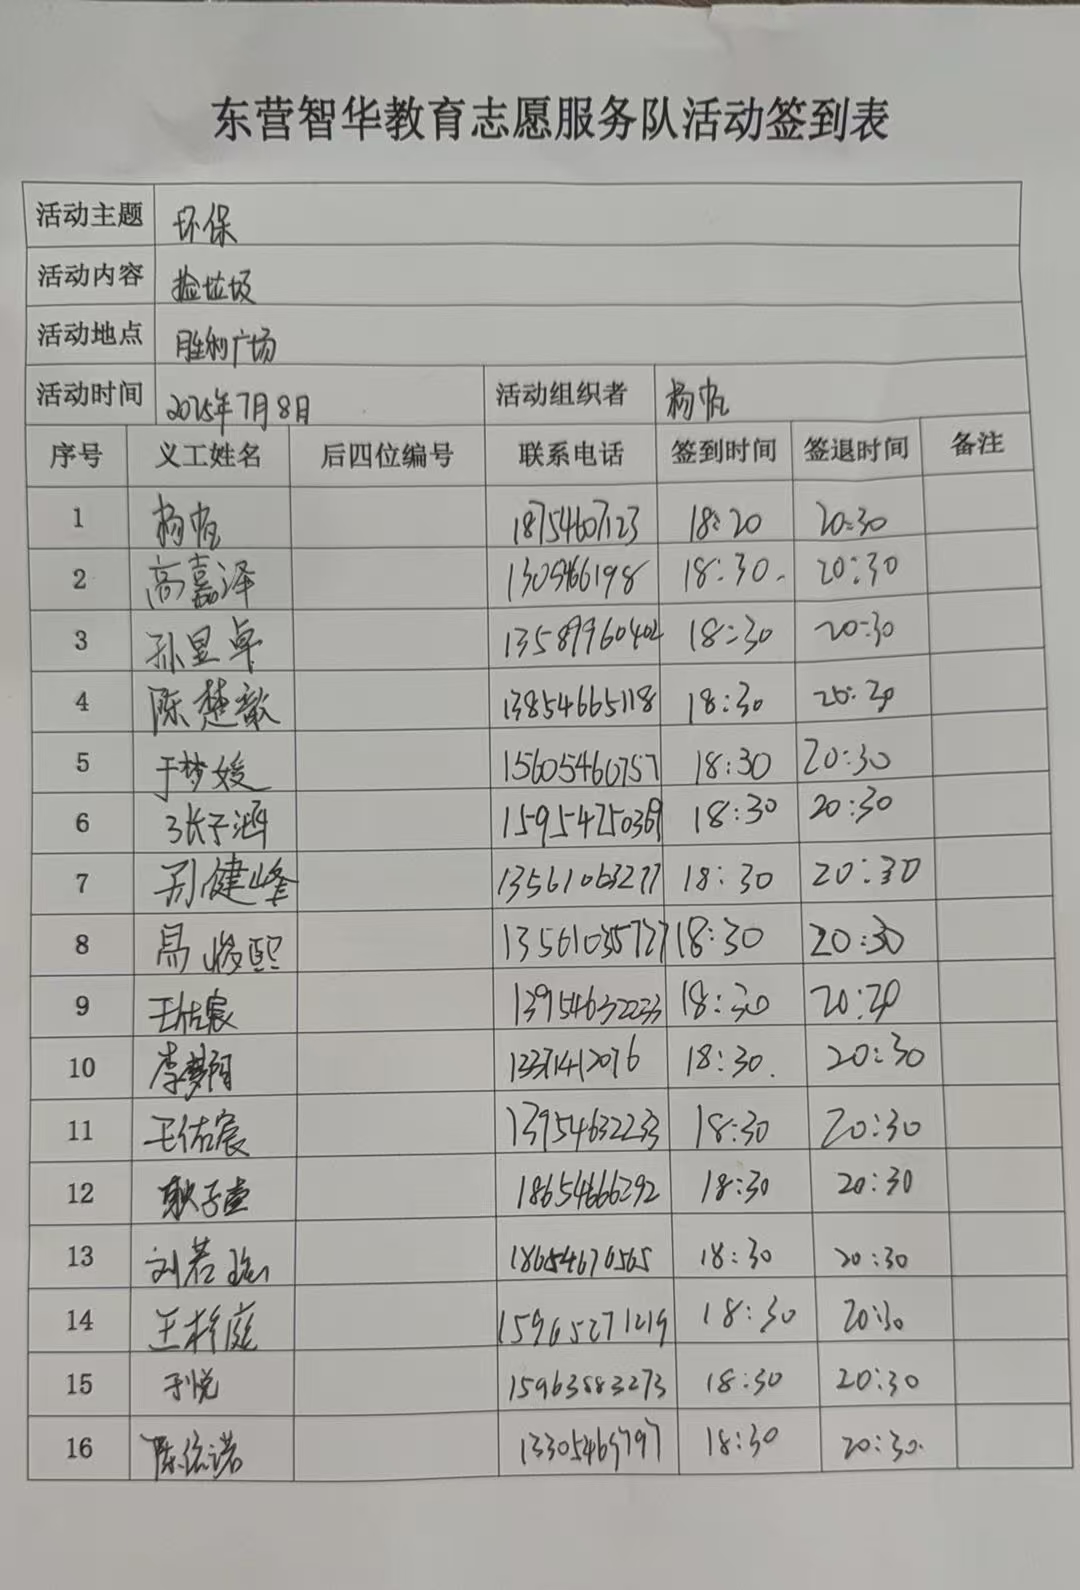 东营智华教育志愿服务队活动签到表
活动主题 环保
活动内容 捡垃圾
活动地点 胜利广场
活动时间 2025年7月8日 活动组织者 杨帆
序号 义工姓名 后四位编号 联系电话 签到时间 签退时间 备注
1 杨帆 18754607123 18:20 20:30
2 高嘉泽 18:30 20:30
3 孙昱卓 13589960402 18:30 20:30
4 陈楚歆 13854665118 18:30 20:30
5 于梦媛 15605460757 18:30 20:30
6 张子涵 15954750369 18:30 20:30
7 健峰 13561063277 18:30 20:30
8 13561035727 18:30 20:30
9 王佑宸 13954632233 18:30 20:30
10 李梦 13371412076 18:30 20:30
11 王佑宸 13954632233 18:30 20:30
12 耿子壹 18654666292 18:30 20:30
13 刘若 18654676565 18:30 20:30
14 王梓庭 15965271219 18:30 20:30
15 于悦 15963883273 18:30 20:30
16 陈依诺 18:30 20:30